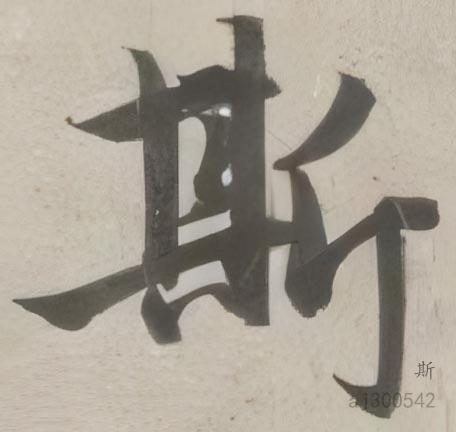 斯
斯
aj300542